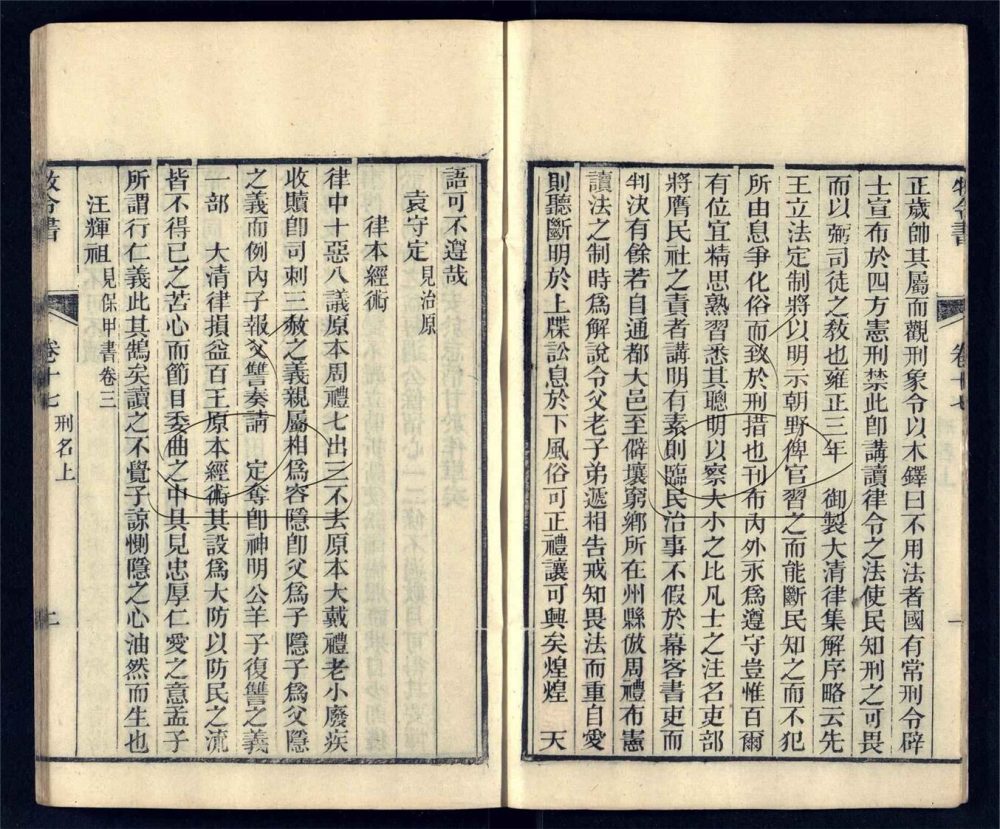 牧令書 卷十七 一
正歲帥其屬而觀刑象令以木鐸曰不用法者國有常刑令辟
士宣布於四方憲刑禁此卽講讀律令之法使民知刑之可畏
而以弼司徒之敎也雍正三年 御製大清律集解序略云先
王立法定制將以明示朝野俾官習之而能斷民知之而不犯
所由息爭化俗而致於刑措也刊布內外永爲遵守豈惟百爾
有位宜精思熟習悉其聰明以察大小之比凡士之注名吏部
將膺民社之責者講明有素則臨民治事不假於幕客書吏而
判決有餘若自通都大邑至僻壤窮鄉所在州縣倣周禮布憲
讀法之制時爲解說令父老子弟遞相告戒知畏法而重自愛
則聽斷明於上牒訟息於下風俗可正禮讓可興矣煌煌 天
語可不遵哉
袁守定見治原
律本經術
律中十惡八議原本周禮七出三不去原本大戴禮老小廢疾
收贖卽司刺三赦之義親屬相爲容隱卽父爲子隱子爲父隱
之義而例內子報父讐奏請 定奪卽神明公羊子復讐之義
一部 大清律損益百王原本經術其設爲大防以防民之流
皆不得已之苦心而節目委曲之中具見忠厚仁愛之意孟子
所謂行仁義此其鵠矣讀之不覺子諒惻隱之心油然而生也
汪輝祖見保甲書卷三
牧令書 卷十七 刑名上